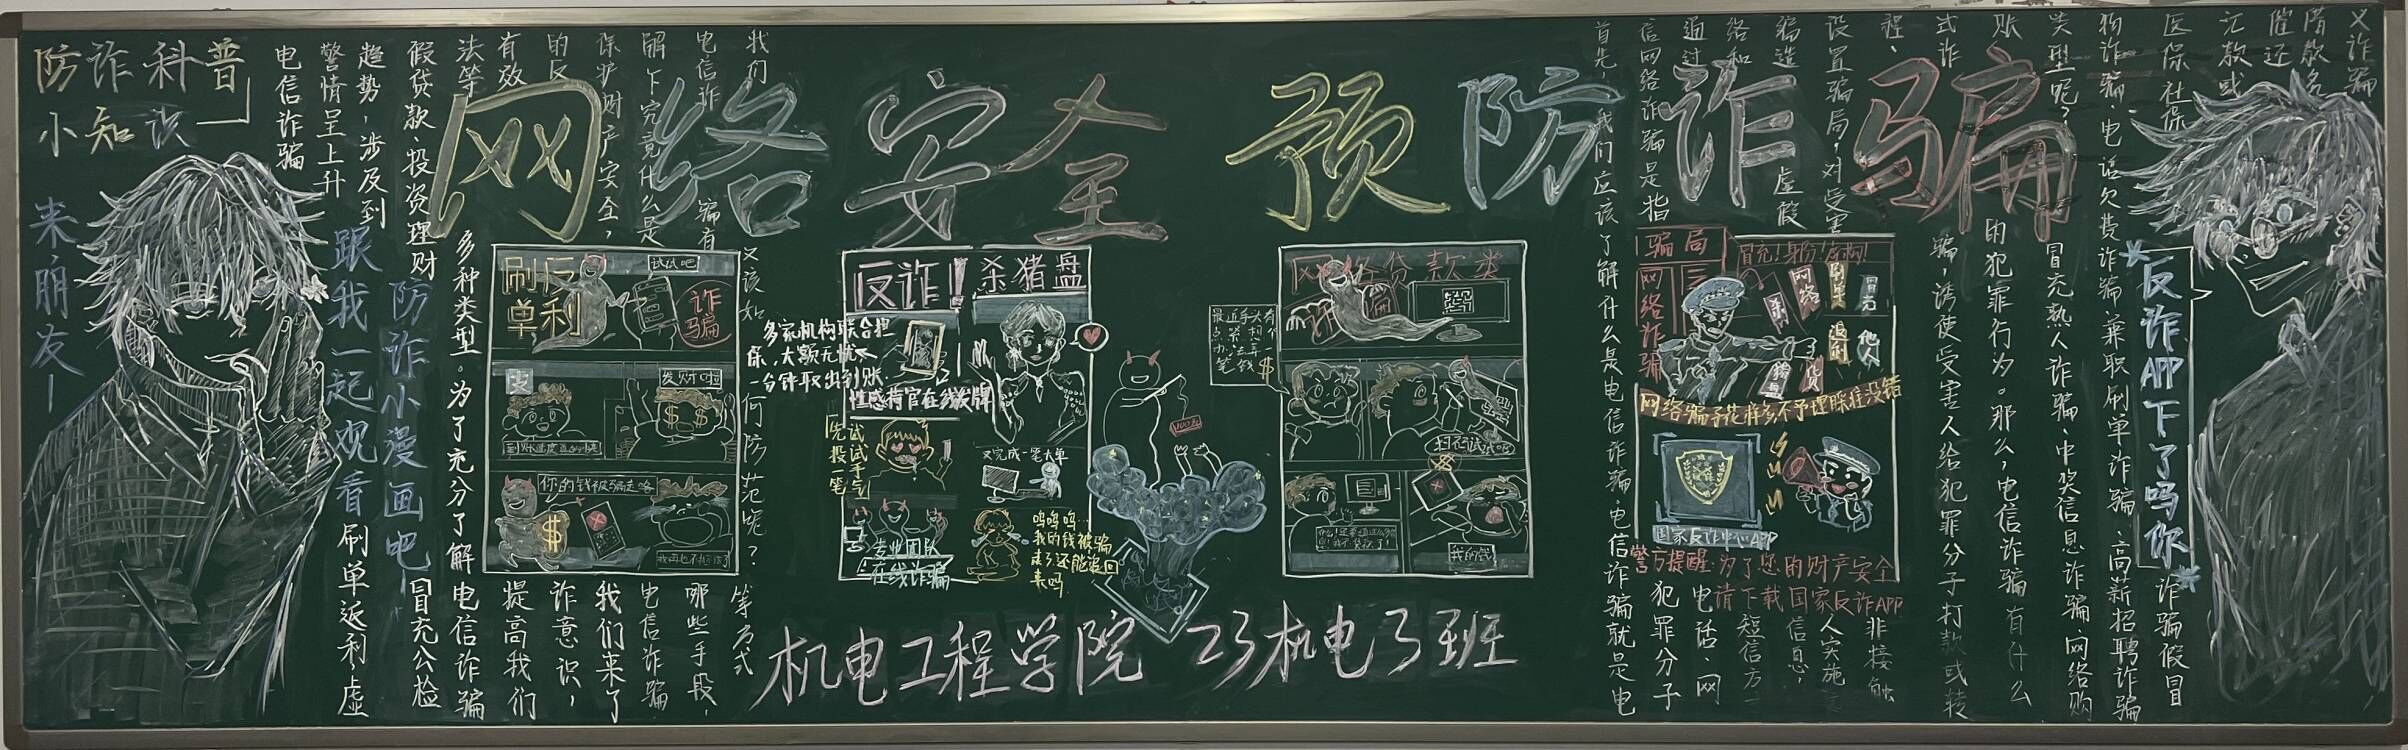 网络安全 预防诈骗
防诈科普
小知识
来朋友—
跟我一起观看
防诈小漫画吧
电信诈骗
警情呈上升
趋势，涉及到
刷单返利虚
假贷款投资理财
冒充公检
法等
多种类型。为了充分了解电信诈骗
有效
提高我们
的反
诈意识，
保护财产安全，
我们来了
解下究竟什么是
电信诈骗
电信诈骗有
哪些手段，
我们
又该如何防范呢？
等方式
刷单
反利
试试吧
诈骗
发财啦
你的钱被骗走咯
反诈！杀猪盘
多家机构联合担
保，大额无忧
一分钟取出到账
性感荷官在线发牌
先试试手气
投笔
又完成一笔大单
专业团队
在线诈骗
呜呜呜…
我的钱被骗
走了还能追回
来吗
网络贷款类
诈骗
最近手头有
点紧想弄
办法
笔钱
$
扫码试试吧
我的钱
机电工程学院 23机电3班
首先，我们应该了解什么是电信诈骗，电信诈骗就是电
信网络诈骗是指
犯罪分子
通过
电话、网
络和
短信方
编造
虚假
信息，
设置骗局，对受害
人实施
程、
非接触
式诈
骗，诱使受害人给犯罪分子打款或转
账
的犯罪行为。那么，电信诈骗有什么
类型呢？
冒充熟人诈骗、中奖信息诈骗 网络购
物诈骗、电话欠费诈骗、兼职刷单诈骗、高薪招聘诈骗
医保社保
诈骗假冒
催还
欠款或
债务
又诈骗
骗局
冒充！身份！架构！
网络诈骗
杀猪
网络
刷单
冒充
返利
他人
网络骗子花样多不予理睬准没错
国家反诈中心APP
警方提醒：为了您的财产安全
请下载国家反诈APP
反诈APP下了吗你